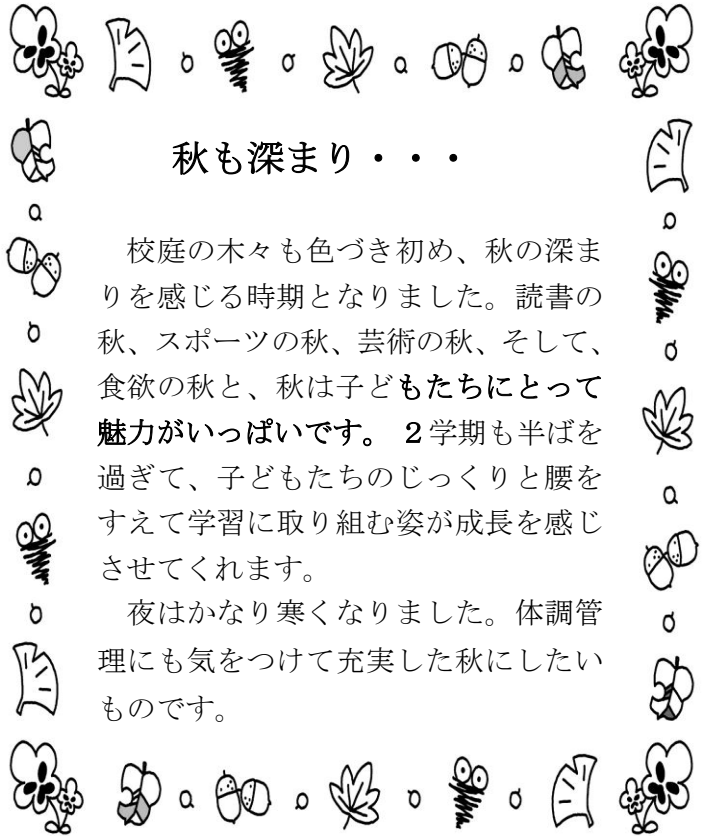 秋も深まり・・・
　校庭の木々も色づき初め、秋の深ま
りを感じる時期となりました。読書の
秋、スポーツの秋、芸術の秋、そして、
食欲の秋と、秋は子どもたちにとって
魅力がいっぱいです。　２学期も半ばを
過ぎて、子どもたちのじっくりと腰を
すえて学習に取り組む姿が成長を感じ
させてくれます。
　夜はかなり寒くなりました。体調管
理にも気をつけて充実した秋にしたい
ものです。